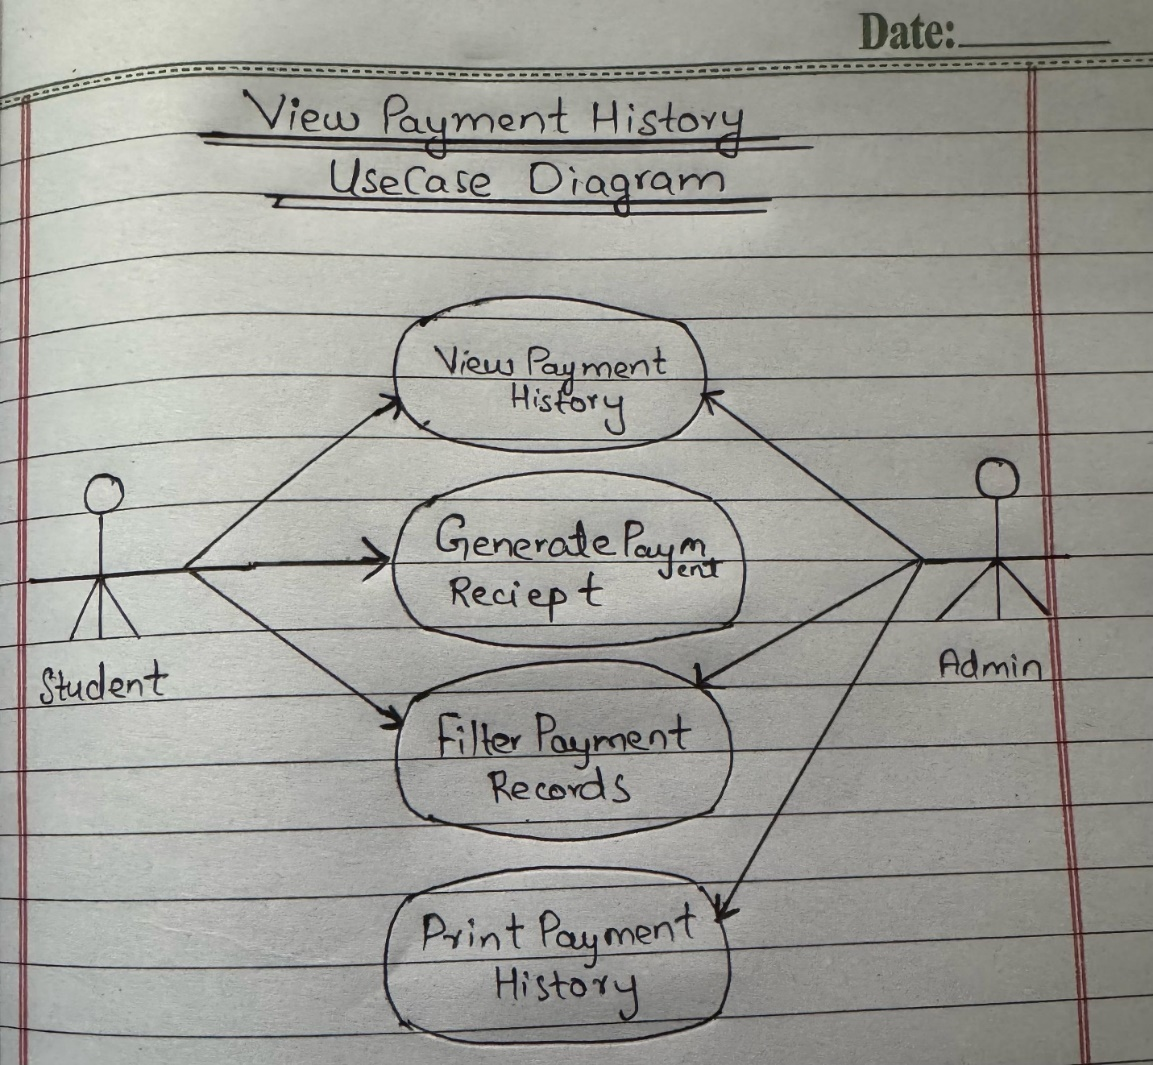 Date:
View Payment History
UseCase Diagram
View Payment
History
Generate Paym
ent
Reciept
Student
Admin
Filter Payment
Records
Print Payment
History